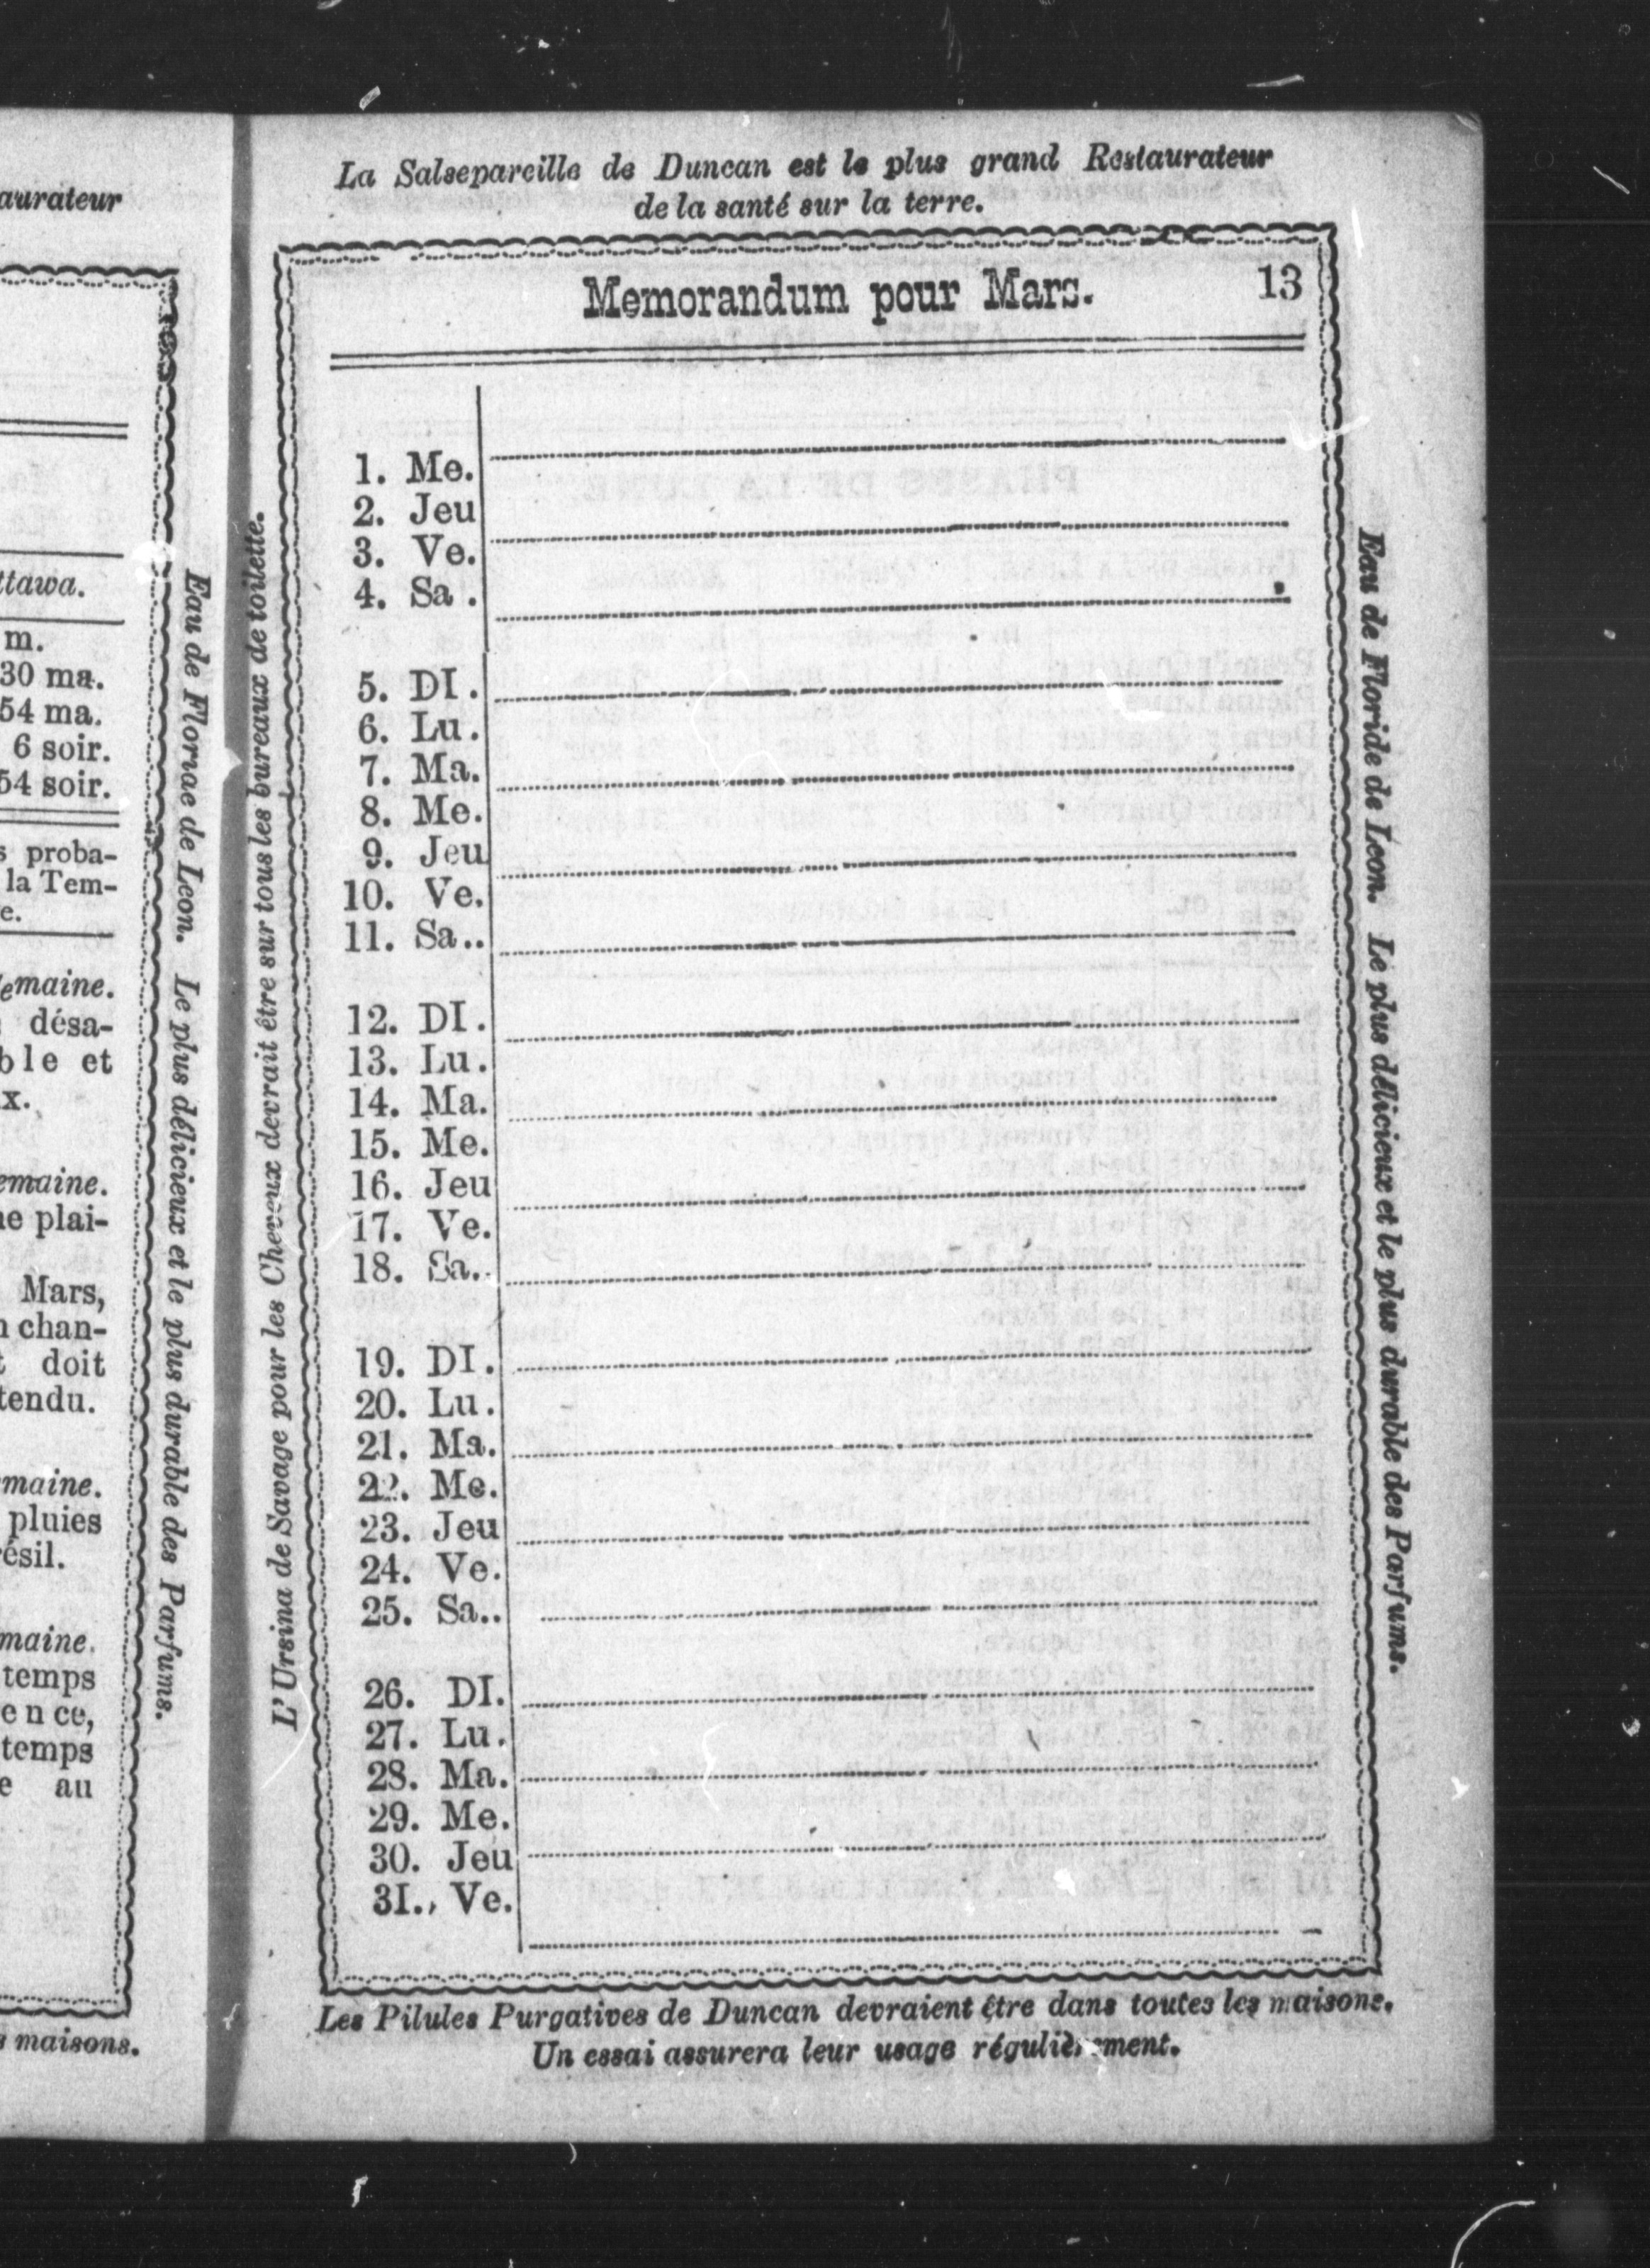 aurateur
ttawa.
m.
30 ma.
54 ma.
6 soir.
54 soir.
s proba-
la Tem-
e.
emaine.
désa-
ble et
x.
emaine.
ne plai-
Mars,
n chan-
t doit
tendu.
maine.
pluies
résil.
maine.
temps
ence,
temps
e au
s maisons.
Eau de Floride de Leon. Le plus délicieux et le plus durable des Parfums.
La Salsepareille de Duncan est le plus grand Restaurateur
de la santé sur la terre.
L'Ursina de Savage pour les Cheveux devrait être sur tous les bureaux de toilette.
Memorandum pour Mars. 13
1. Me.
2. Jeu
3. Ve.
4. Sa.
5. DI.
6. Lu.
7. Ma.
8. Me.
9. Jeu
10. Ve.
11. Sa..
12. DI.
13. Lu.
14. Ma.
15. Me.
16. Jeu
17. Ve.
18. Sa..
19. DI.
20. Lu.
21. Ma.
22. Me.
23. Jeu
24. Ve.
25. Sa..
26. DI.
27. Lu.
28. Ma.
29. Me.
30. Jeu
31. Ve.
Eau de Floride de Leon. Le plus délicieux et le plus durable des Parfums.
Les Pilules Purgatives de Duncan devraient être dans toutes les maisons.
Un essai assurera leur usage régulièrement.